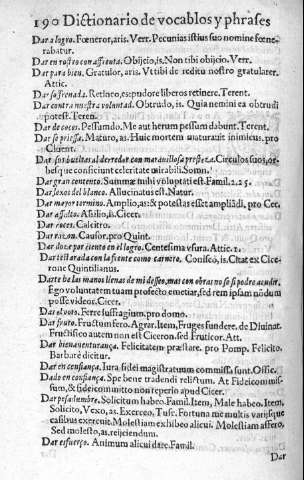 190 Dictionario de vocablos y phrases
Dar a logro. Fœneror, aris. Verr. Pecunias istius suo nomine fœne-
rabatur.
Dar en rostro con afrenta. Obijcio, is. Non tibi obijcio. Verr.
Dar para bien. Gratulor, aris. Vt tibi de reditu nostro gratularer.
Attic.
Dar sofrenada. Retineo, es: pudore liberos retinere. Terent.
Dar contra nuestra voluntad. Obtrudo, is. Quia nemini ea obtrudi
potest. Teren.
Dar de coces. Pessundo. Me aut herum pessum dabunt. Terent.
Dar se priessa. Maturo, as. Huic mortem maturabat inimicus. pro
Cluent.
Dar sus bueltas al derredor con marauillosa presteza. Circulos suos, or-
besque conficiunt celeritate mirabili. Somn.
Dar gran contento. Summæ mihi voluptati est. Famil. 2. 25.
Dar lexos del blanco. Allucinatus est. Natur.
Dar mayor termino. Amplio, as: & potestas esset ampliãdi, pro Cec.
Dar assalto. Assilio, is. Cicer.
Dar coces. Calcitro.
Dar razon. Causor. pro Quint.
Dar doze por ciento en el logro. Centesima vsura. Attic. 1.
Dar testarada con la frente como carnero. Conisco, is. Citat ex Cice-
rone Quintilianus.
Darte he las manos llenas de mi desseo, mas con obras no se si podre acudir.
Ego voluntatem tuam profecto emetiar, sed rem ipsam nõdum
posse videor. Cicer.
Dar el voto. Ferre suffragium. pro domo.
Dar fruto. Fructum fero. Agrar. Item, Fruges fundere. de Diuinat.
Fructifico autem non est Ciceron. sed Fruticor. Att.
Dar bienauenturança. Felicitatem præstare. pro Pomp. Felicito,
Barbarè dicitur.
Dar en confiança. Iura. si del magistratum commissa sunt. Offic.
Dado en confiança. Spe bene tradendi relictum. At Fideicommis-
sum, & fideicommitto non reperio apud Cicer.
Dar pesadumbre. Solicitum habeo. Famil. Item, Male habeo. Item,
Solicito, Vexo, as. Exerceo, Tusc. Fortuna me multis varijsque
casibus exercuit. Molestiam exhibeo alicui. Molestiam affero,
Sed molesto, as. reijciendum.
Dar esfuerço. Animum alicui dare. Famil.
Dar